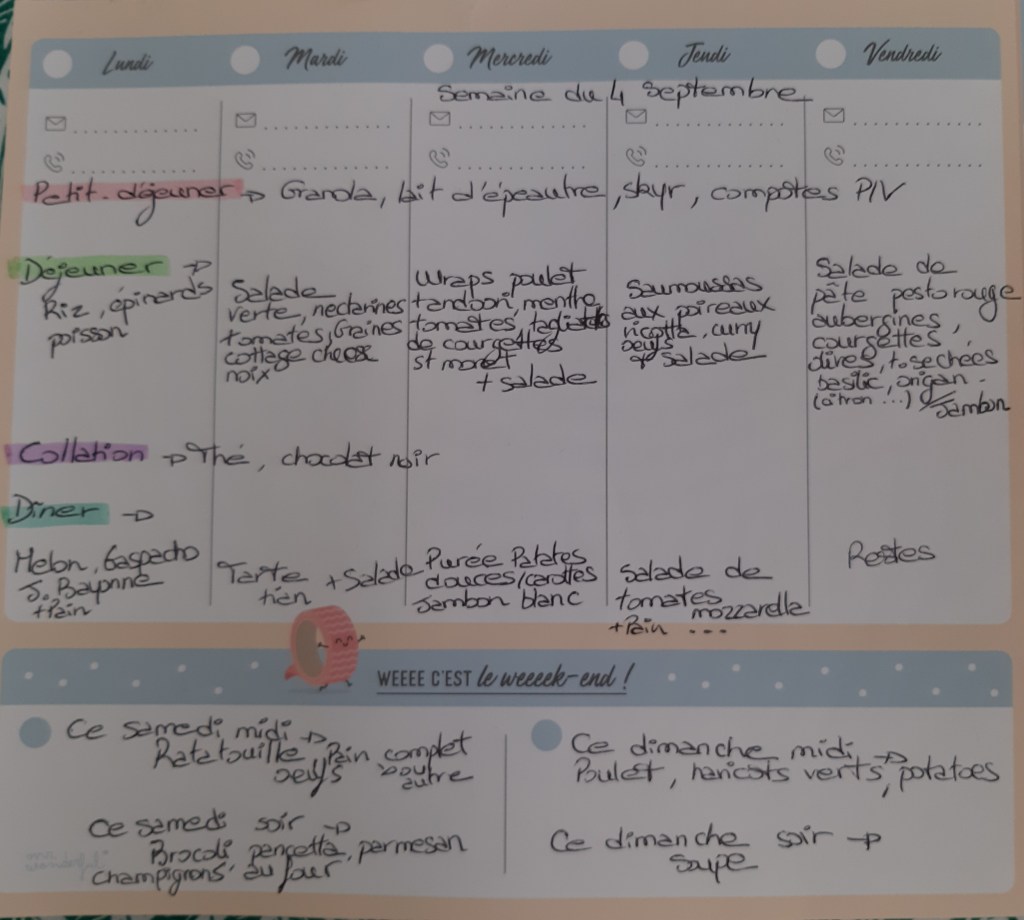 Lundi
Mardi
Mercredi
Jeudi
Vendredi
Semaine du 4 Septembre
Petit-déjeuner → Granola, lait d'épeautre, skyr, compotes PIV
Déjeuner →
Riz, épinards
poisson
Salade
verte, nectarines
tomates, Graines
cottage cheese
noix
Wraps poulet
tandoori, menthe,
tomates, tagliatelles
de courgettes
st moret
+ salade
Saumoussas
aux poireaux
ricotta, curry
oeufs
+ salade
Salade de
pâte pesto rouge
aubergines,
courgettes,
olives, to. sechées
basilic, origan.
(citron ...)
Jambon
Collation → Thé, chocolat noir
Dîner →
Melon, Gaspacho
J. Bayonne
+ Pain
Tarte + Salade
tien
Purée Patates
douces/carottes
Jambon blanc
Salade de
tomates
mozzarella
+ Pain ...
Restes
WEEEE C'EST le weeeek-end !
Ce samedi midi →
Ratatouille Pain complet
oeufs ou
autre
Ce samedi soir →
Brocoli pancetta, parmesan
champignons au four
Ce dimanche midi →
Poulet, haricots verts, potatoes
Ce dimanche soir →
soupe